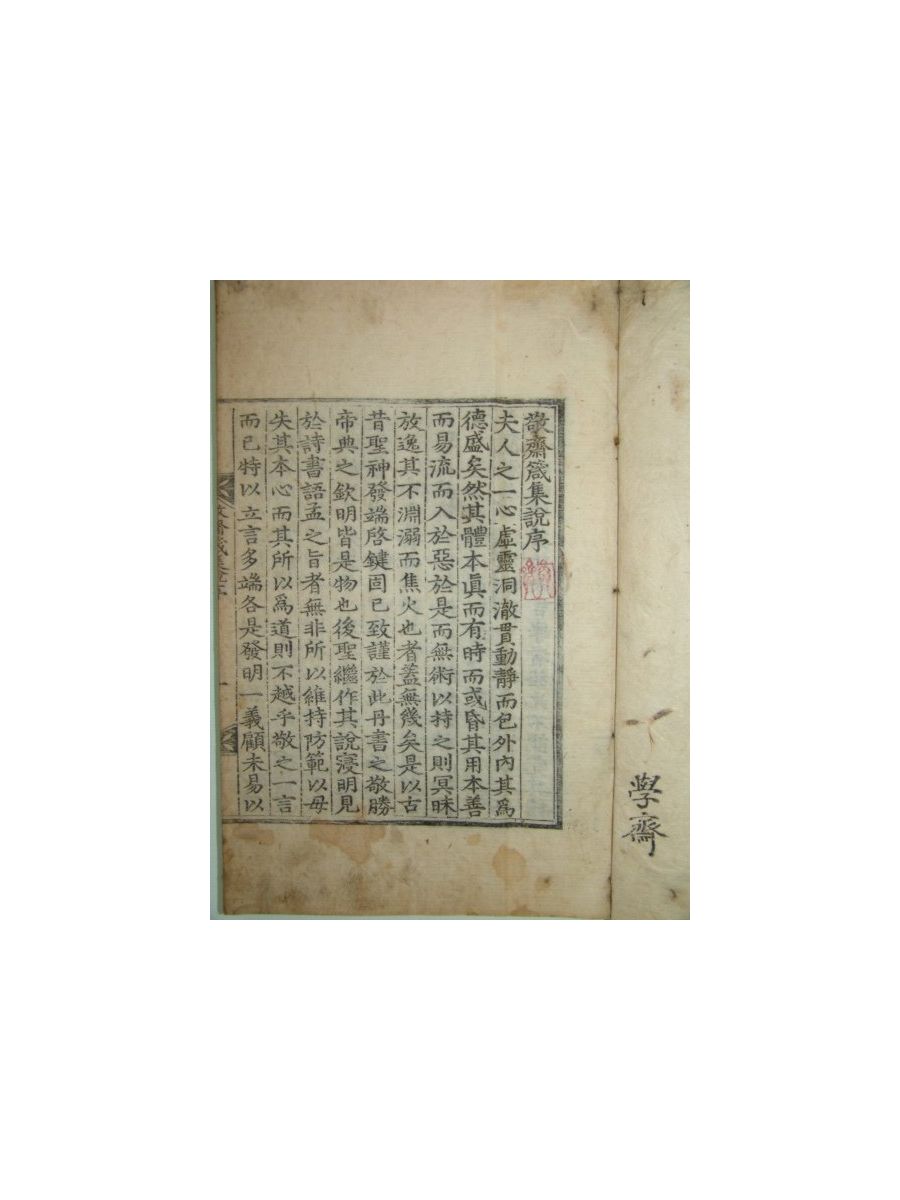 學齋
敬齋箴集說序
夫人之一心虛靈洞澈貫動靜而包外內其爲
德盛矣然其體本眞而有時而或昏其用本善
而易流而入於惡於是而無術以持之則冥昧
放逸其不淵溺而焦火也者蓋無幾矣是以古
昔聖神發端啓鍵固已致謹於此丹書之敬勝
帝典之欽明皆是物也後聖繼作其說寖明見
於詩書語孟之旨者無非所以維持防範以毋
失其本心而其所以爲道則不越乎敬之一言
而已特以立言多端各是發明一義顧未易以